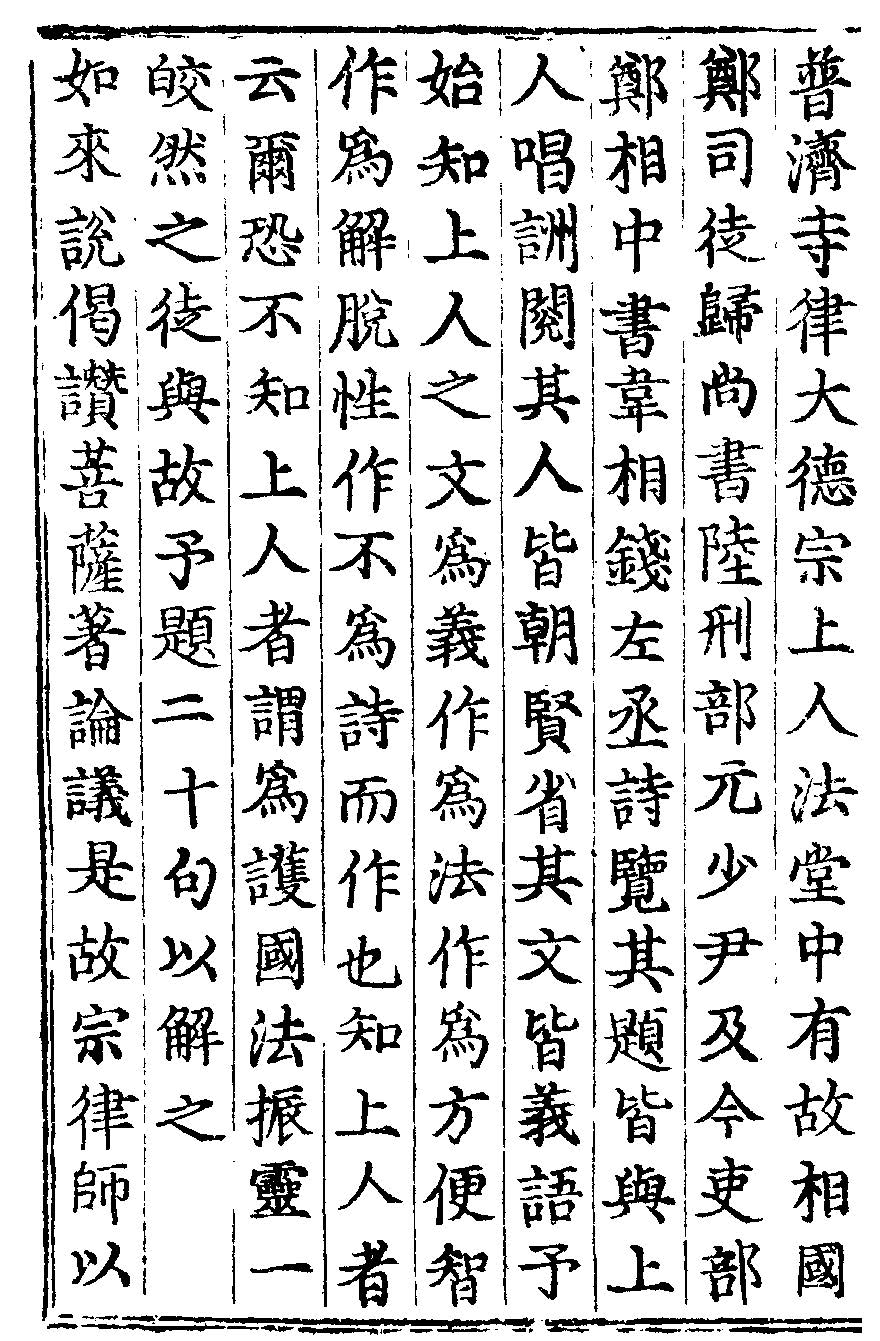 普濟寺律大德宗上人法堂中有故相國
鄭司徒歸尚書陸刑部元少尹及今吏部
鄭相中書韋相錢左丞詩覽其題皆與上
人唱詶閱其人皆朝賢省其文皆義語予
始知上人之文爲義作爲法作爲方便智
作爲解脫性作不爲詩而作也知上人者
云爾恐不知上人者謂爲護國法振靈一
皎然之徒與故予題二十句以解之
如來說偈讚菩薩著論議是故宗律師以